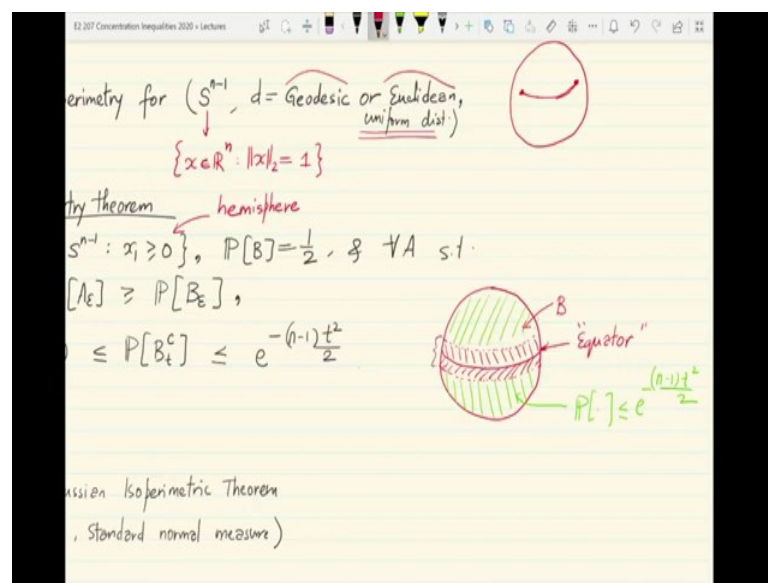 E2 207 Concentration Inequalities 2020 » Lectures
erimetry for (S^{n-1}, d = Geodesic or Euclidean,
uniform dist.)
{x ∈ R^n : ||x||_2 = 1}
try theorem
hemisphere
S^{n-1} : x_1 ≥ 0}, P[B] = 1/2, & ∀A s.t.
[A_ε] ≥ P[B_ε],
) ≤ P[B_t^c] ≤ e^{-(n-1)t^2/2}
B
"Equator"
P[.] ≤ e^{-(n-1)t^2/2}
ussian Isoperimetric Theorem
, Standard normal measure)